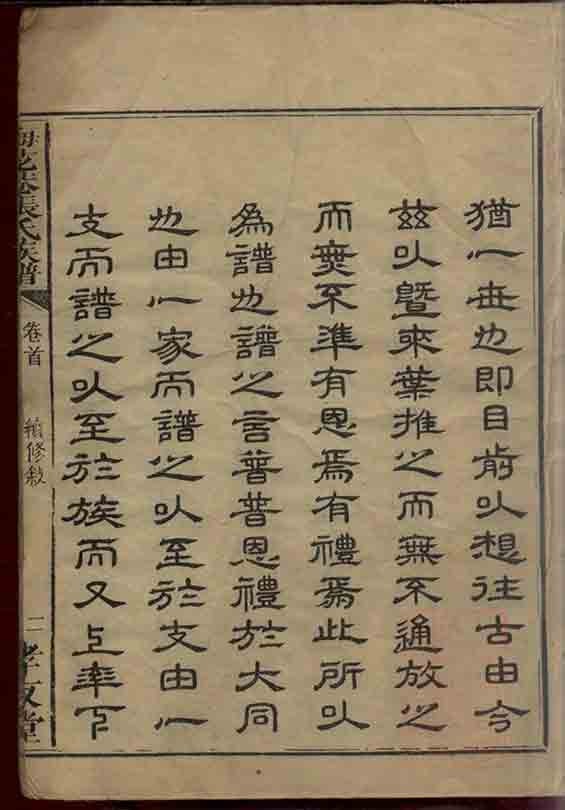 猶一世也即目前以想往古由今
茲以曁來葉推之而無不通放之
而無不準有恩焉有禮焉此所以
為譜也譜之言普普恩禮於大同
也由一家而譜之以至於支由一
支而譜之以至於族而又上率下
張氏族譜
卷首
續修敘
二
孝友堂